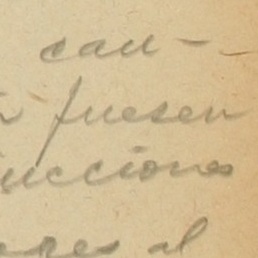 cau-
fuesen
ucciones
eres al